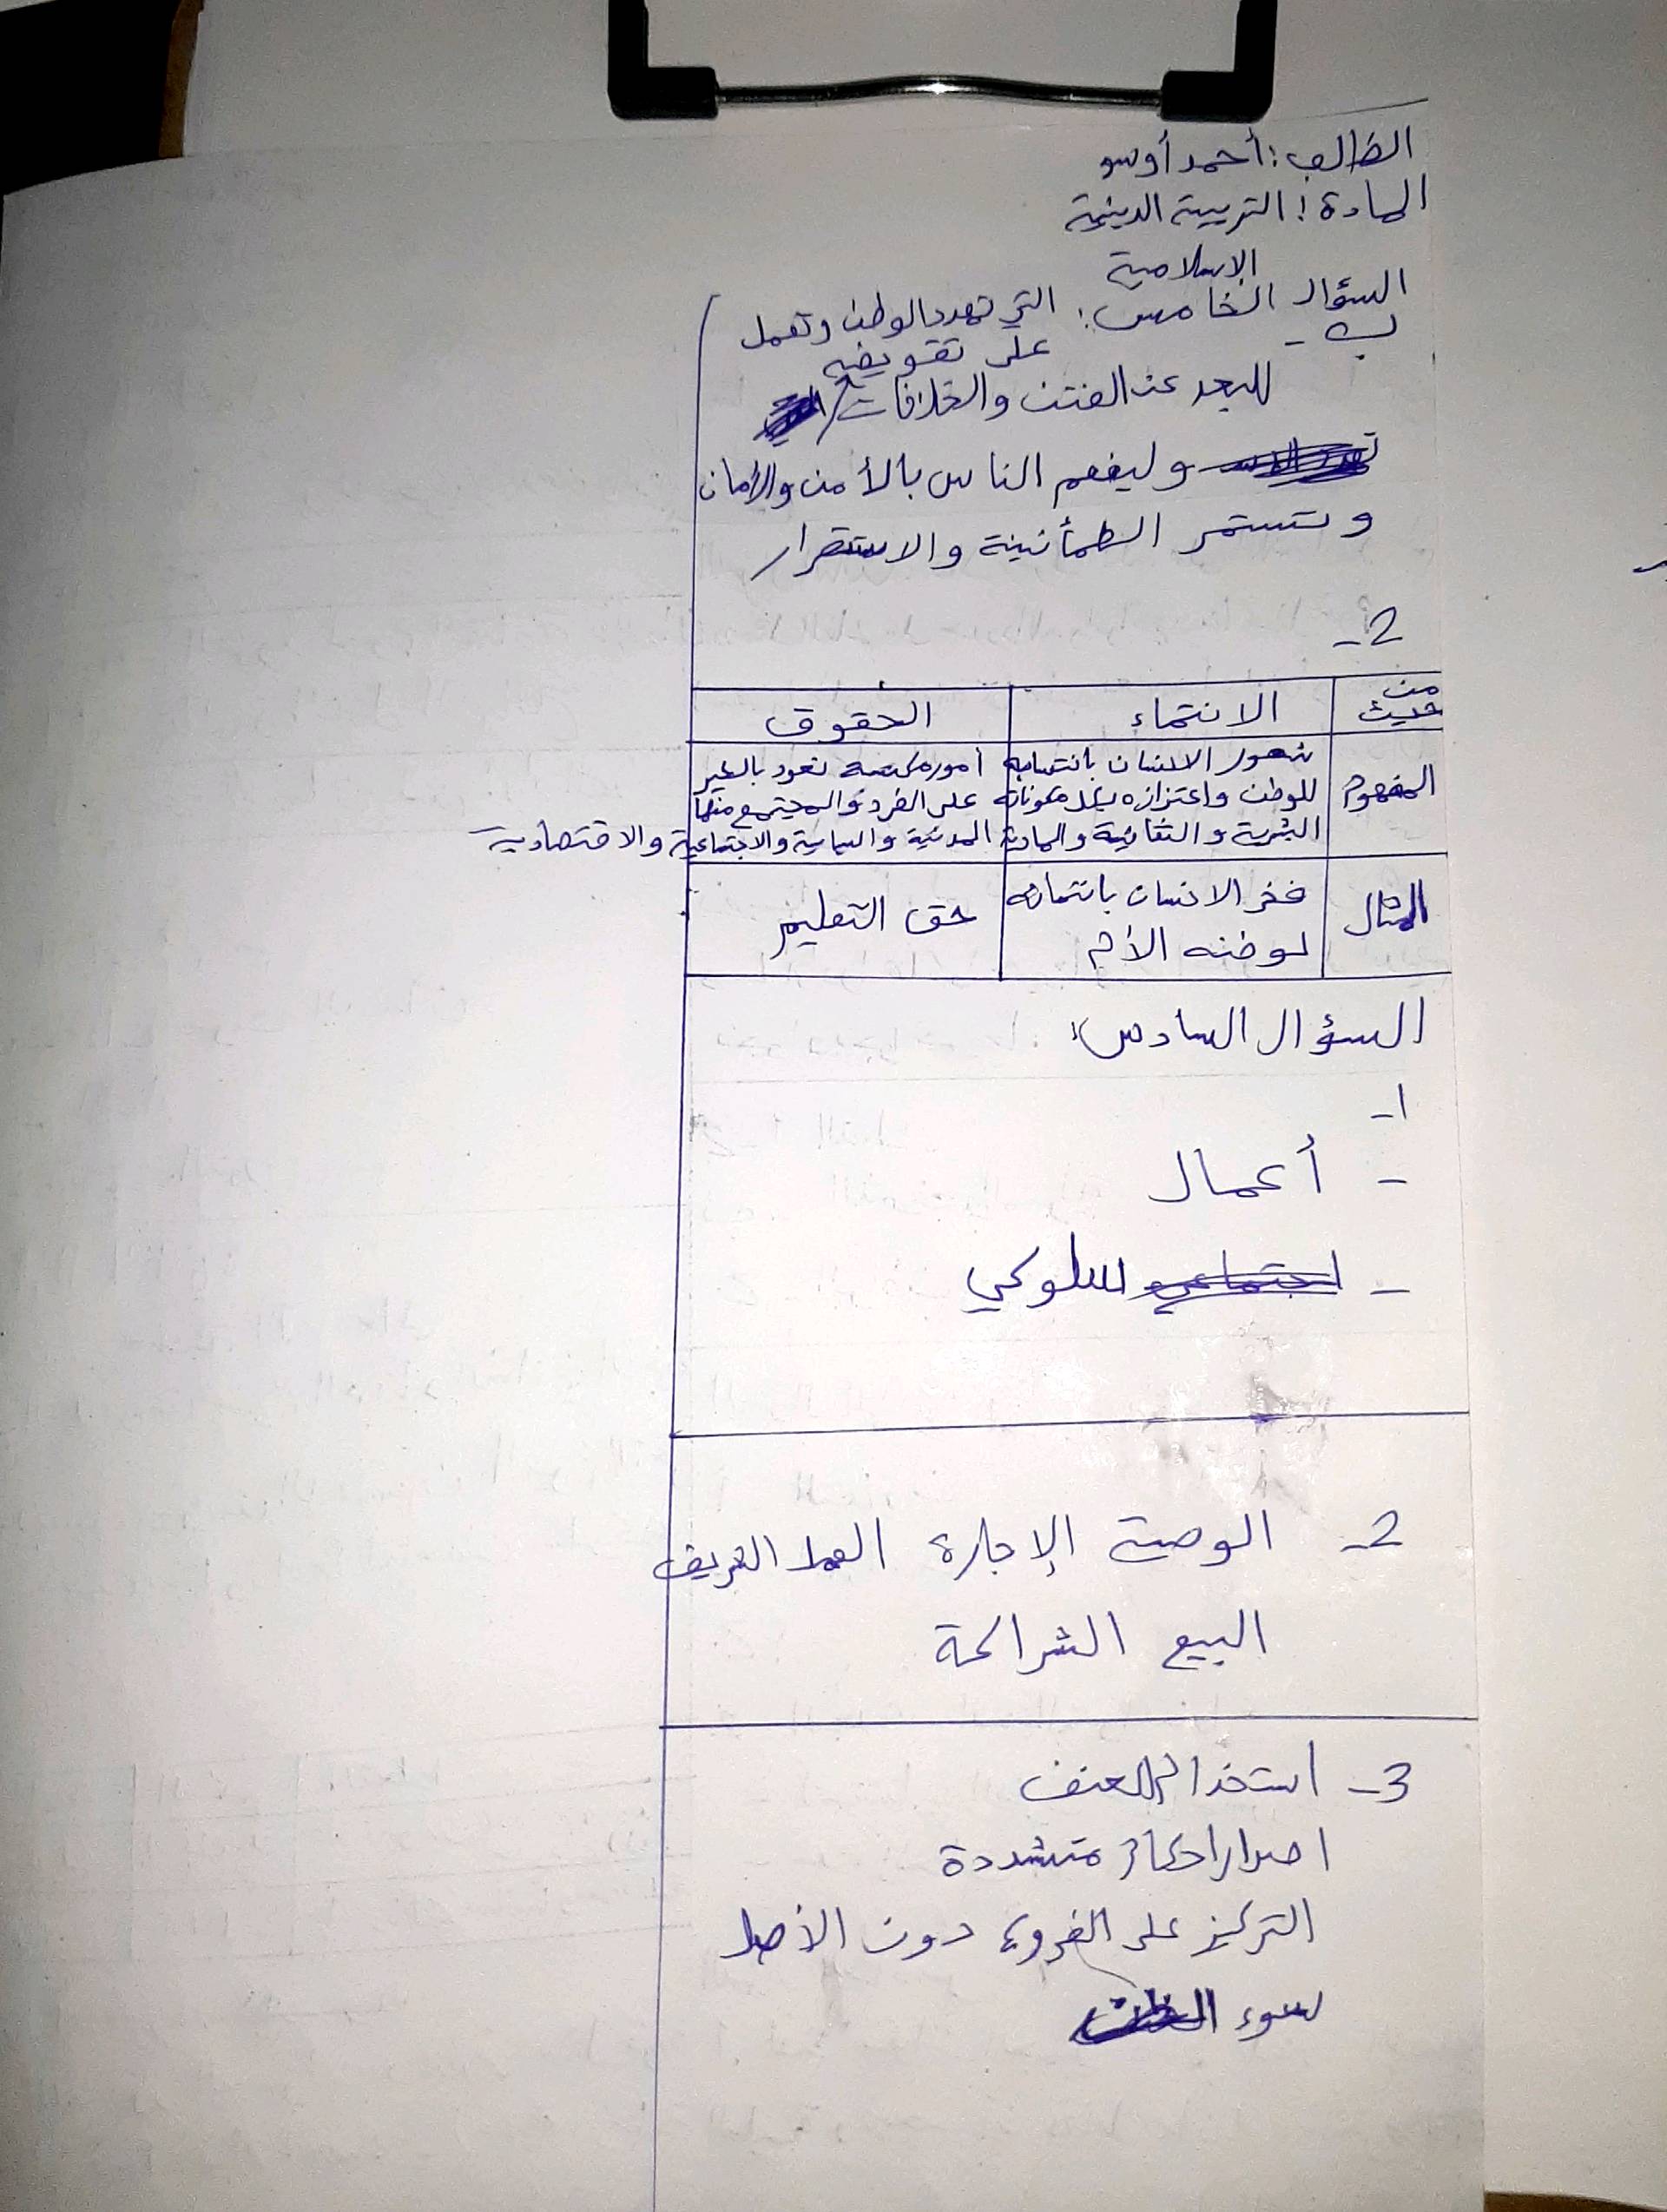 الطالب: أحمد أوسو
المادة: التربية الدينية
الإسلامية
السؤال الخامس: التي تهدد الوطن وتعمل
ب - على تقويضه
للبعد عن الفتن والخلافات
ولينعم الناس بالأمن والأمان
وتستمر الطمأنينة والاستقرار
2-
من حيث الانتماء الحقوق
المفهوم شعور الانسان بانتسابه للوطن واعتزازه بكل مكوناته البشرية والثقافية والمادية أمور مكتسبة تعود بالخير على الفرد والمجتمع منها المدنية والسياسية والاجتماعية والاقتصادية
المثال فخر الانسان بانتمائه لوطنه الأم حق التعليم
السؤال السادس:
1-
- أعمال
- اجتماعي سلوكي
2- الوصية الإجارة العمل الشريف
البيع الشراكة
3- استخدام العنف
اصدار احكام متشددة
التركيز على الفروع دون الأصل
سوء الظن